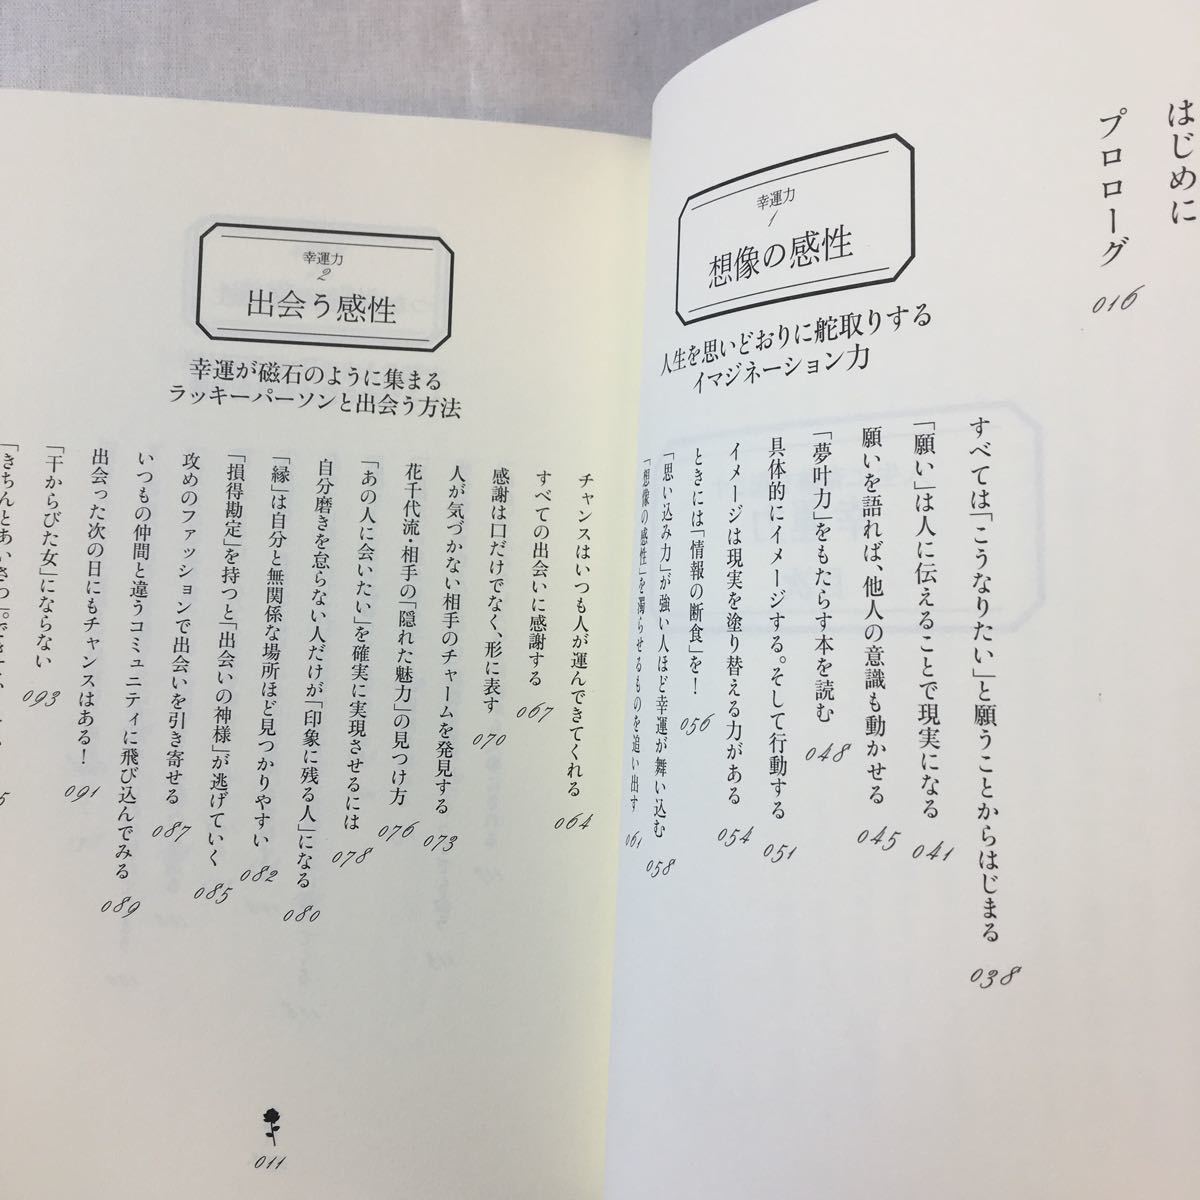 はじめに
プロローグ 016
幸運力
1
想像の感性
人生を思いどおりに舵取りする
イマジネーション力
すべては「こうなりたい」と願うことからはじまる 038
「願い」は人に伝えることで現実になる 041
願いを語れば、他人の意識も動かせる 045
「夢叶力」をもたらす本を読む 048
具体的にイメージする。そして行動する 051
イメージは現実を塗り替える力がある 054
ときには「情報の断食」を! 056
「思い込み力」が強い人ほど幸運が舞い込む 058
「想像の感性」を濁らせるものを追い出す 061
幸運力
2
出会う感性
幸運が磁石のように集まる
ラッキーパーソンと出会う方法
チャンスはいつも人が運んできてくれる 064
すべての出会いに感謝する 067
感謝は口だけでなく、形に表す 070
人が気づかない相手のチャームを発見する 073
花千代流・相手の「隠れた魅力」の見つけ方 076
「あの人に会いたい」を確実に実現させるには 078
自分磨きを怠らない人だけが「印象に残る人」になる 080
「縁」は自分と無関係な場所ほど見つかりやすい 082
「損得勘定」を持つと「出会いの神様」が逃げていく 085
攻めのファッションで出会いを引き寄せる 087
いつもの仲間と違うコミュニティに飛び込んでみる 089
出会った次の日にもチャンスはある! 091
「干からびた女」にならない 093
「きちんとあいさつ」
011